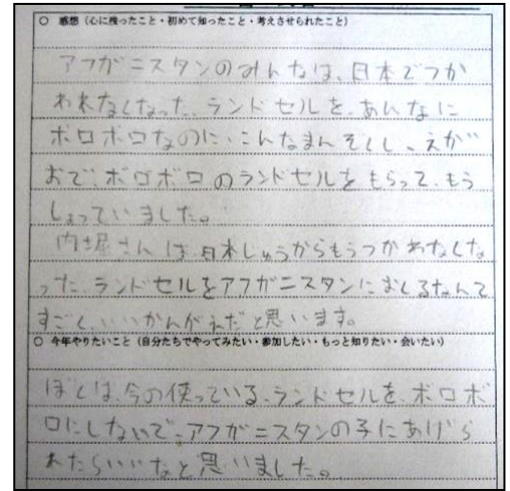 ○ 感想（心に残ったこと・初めて知ったこと・考えさせられたこと）
アフガニスタンのみんなは、日本でつか
われなくなった、ランドセルを、あんなに
ボロボロなのに、こんなまんぞくし、えが
おで、ボロボロのランドセルをもらって、もう
しょっていました。
内堀さんは、日本じゅうからもうつかわなくな
った、ランドセルをアフガニスタンにおくるなんて
すごく、いいかんがえだと思います。
○ 今年やりたいこと（自分たちでやってみたい・参加したい・もっと知りたい・会いたい）
ぼくは、今の使っている、ランドセルを、ボロボ
ロにしないで、アフガニスタンの子にあげら
れたらいいなと思いました。